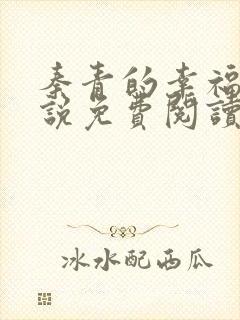 秦青的幸福
說免費閱讀
冰水配西瓜